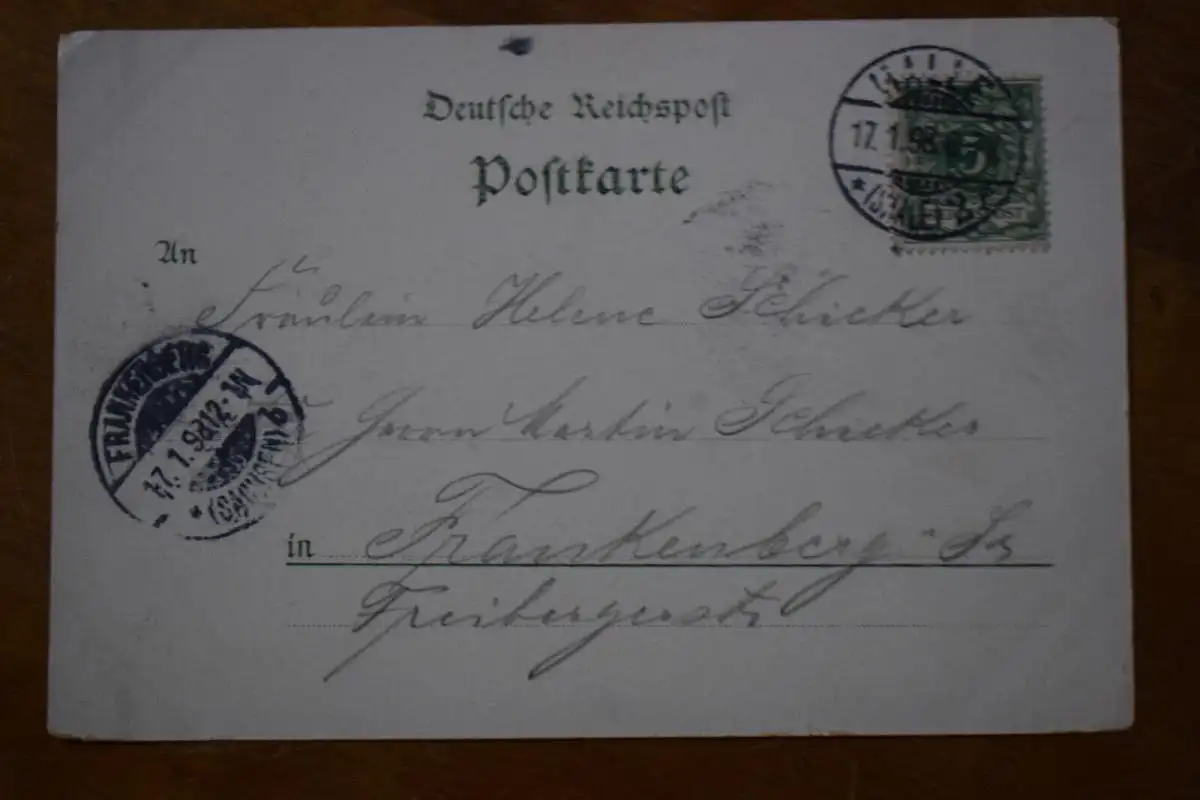 Deutsche Reichspost
Postkarte
HALLE
17.1.98
* (SAALE) 2
5
An
Fräulein Helene Schicker
Martin Schicker
FRANKENBERG
17.1.98 12-1N
* (SACHSEN) b
in Frankenberg Sa
Freibergerstr